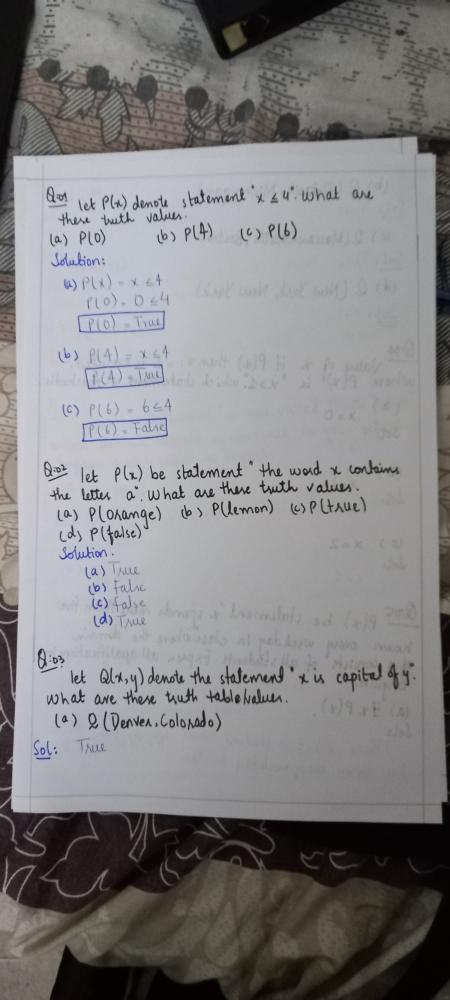 Q:01 let P(x) denote statement "x ≤ 4". What are
these truth values.
(a) P(0) (b) P(4) (c) P(6)
Solution:
(a) P(x) = x ≤ 4
P(0) = 0 ≤ 4
P(0) = True
(b) P(4) = x ≤ 4
P(4) = True
(c) P(6) = 6 ≤ 4
P(6) = False
Q:02 let P(x) be statement "the word x contains
the letter a". What are these truth values.
(a) P(orange) (b) P(lemon) (c) P(true)
(d) P(false)
Solution.
(a) True
(b) False
(c) False
(d) True
Q:03
let Q(x,y) denote the statement "x is capital of y".
What are these truth table values.
(a) Q (Denver, Colorado)
Sol: True